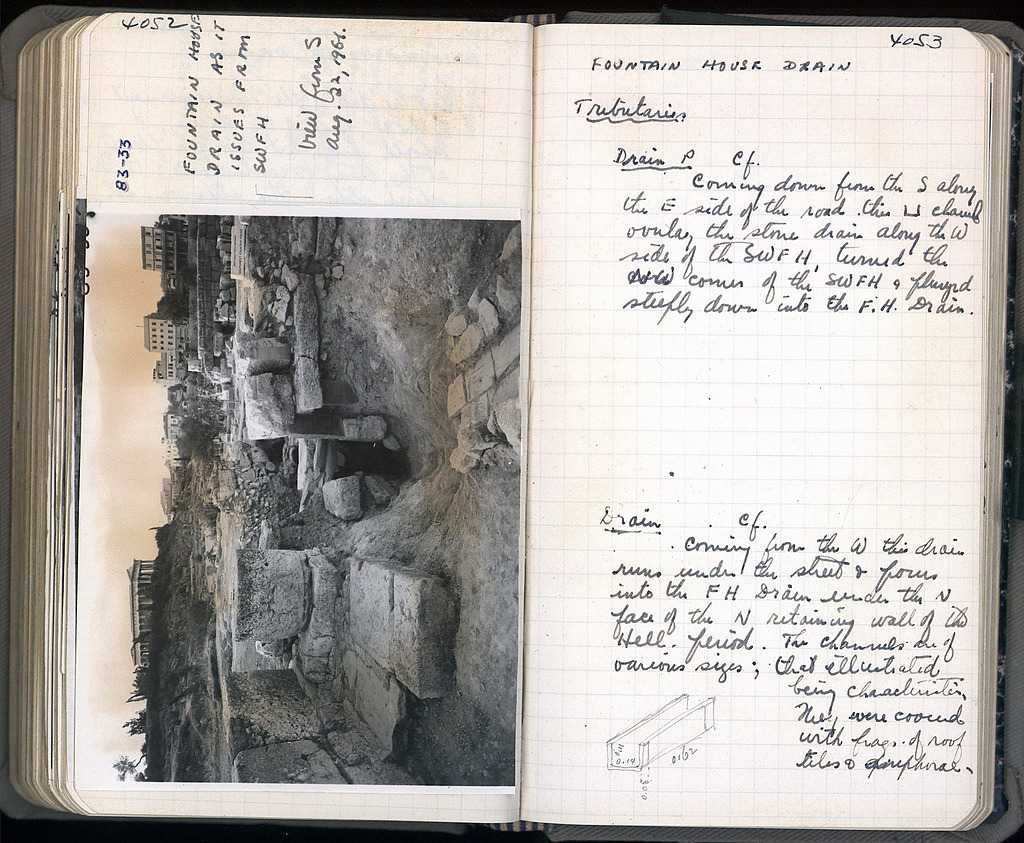 4052
FOUNTAIN HOUSE
DRAIN AS IT
ISSUES FROM
SWFH
View from S
Aug. 22, 1961.
83-33
4053
FOUNTAIN HOUSE DRAIN
Tributaries
Drain P Cf.
Coming down from the S along
the E side of the road this ⊔ channel
overlay the stone drain along the W
side of the SWFH, turned the
NW corner of the SWFH & plunged
steeply down into the F.H. Drain.
Drain Cf.
Coming from the W this drain
runs under the street & pours
into the FH Drain under the N
face of the N retaining wall of the
Hell. period. The channels are of
various sizes; that illustrated
being characteristic.
They were covered
with frags. of roof
tiles & amphorae.
0.11
0.14
0.62
0.08